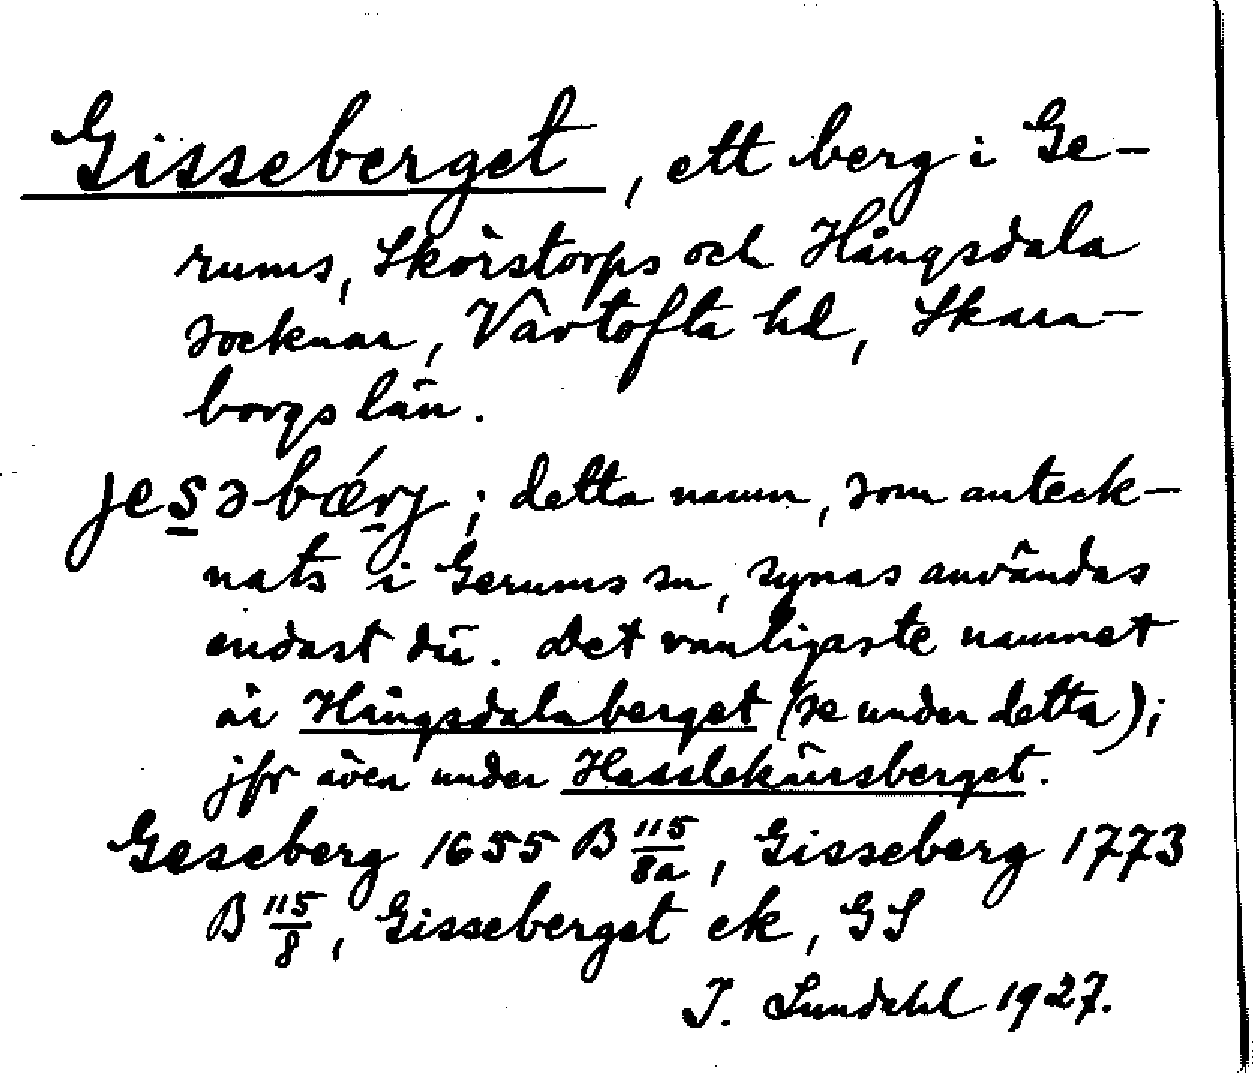 Gisseberget, ett berg i Ge-
rums, Skörstorps och Hångsdala
socknar, Vartofta hd, Skara-
borgs län.
jesəbǽrj; detta namn, som anteck-
nats i Gerums sn, synas användas
endast där. Det vanligaste namnet
är Hångsdalaberget (se under detta);
jfr även under Hasslekärsberget.
Geseberg 1655 B 115/8a, Gisseberg 1773
B 115/8, Gisseberget ek, GS
I. Lundahl 1927.